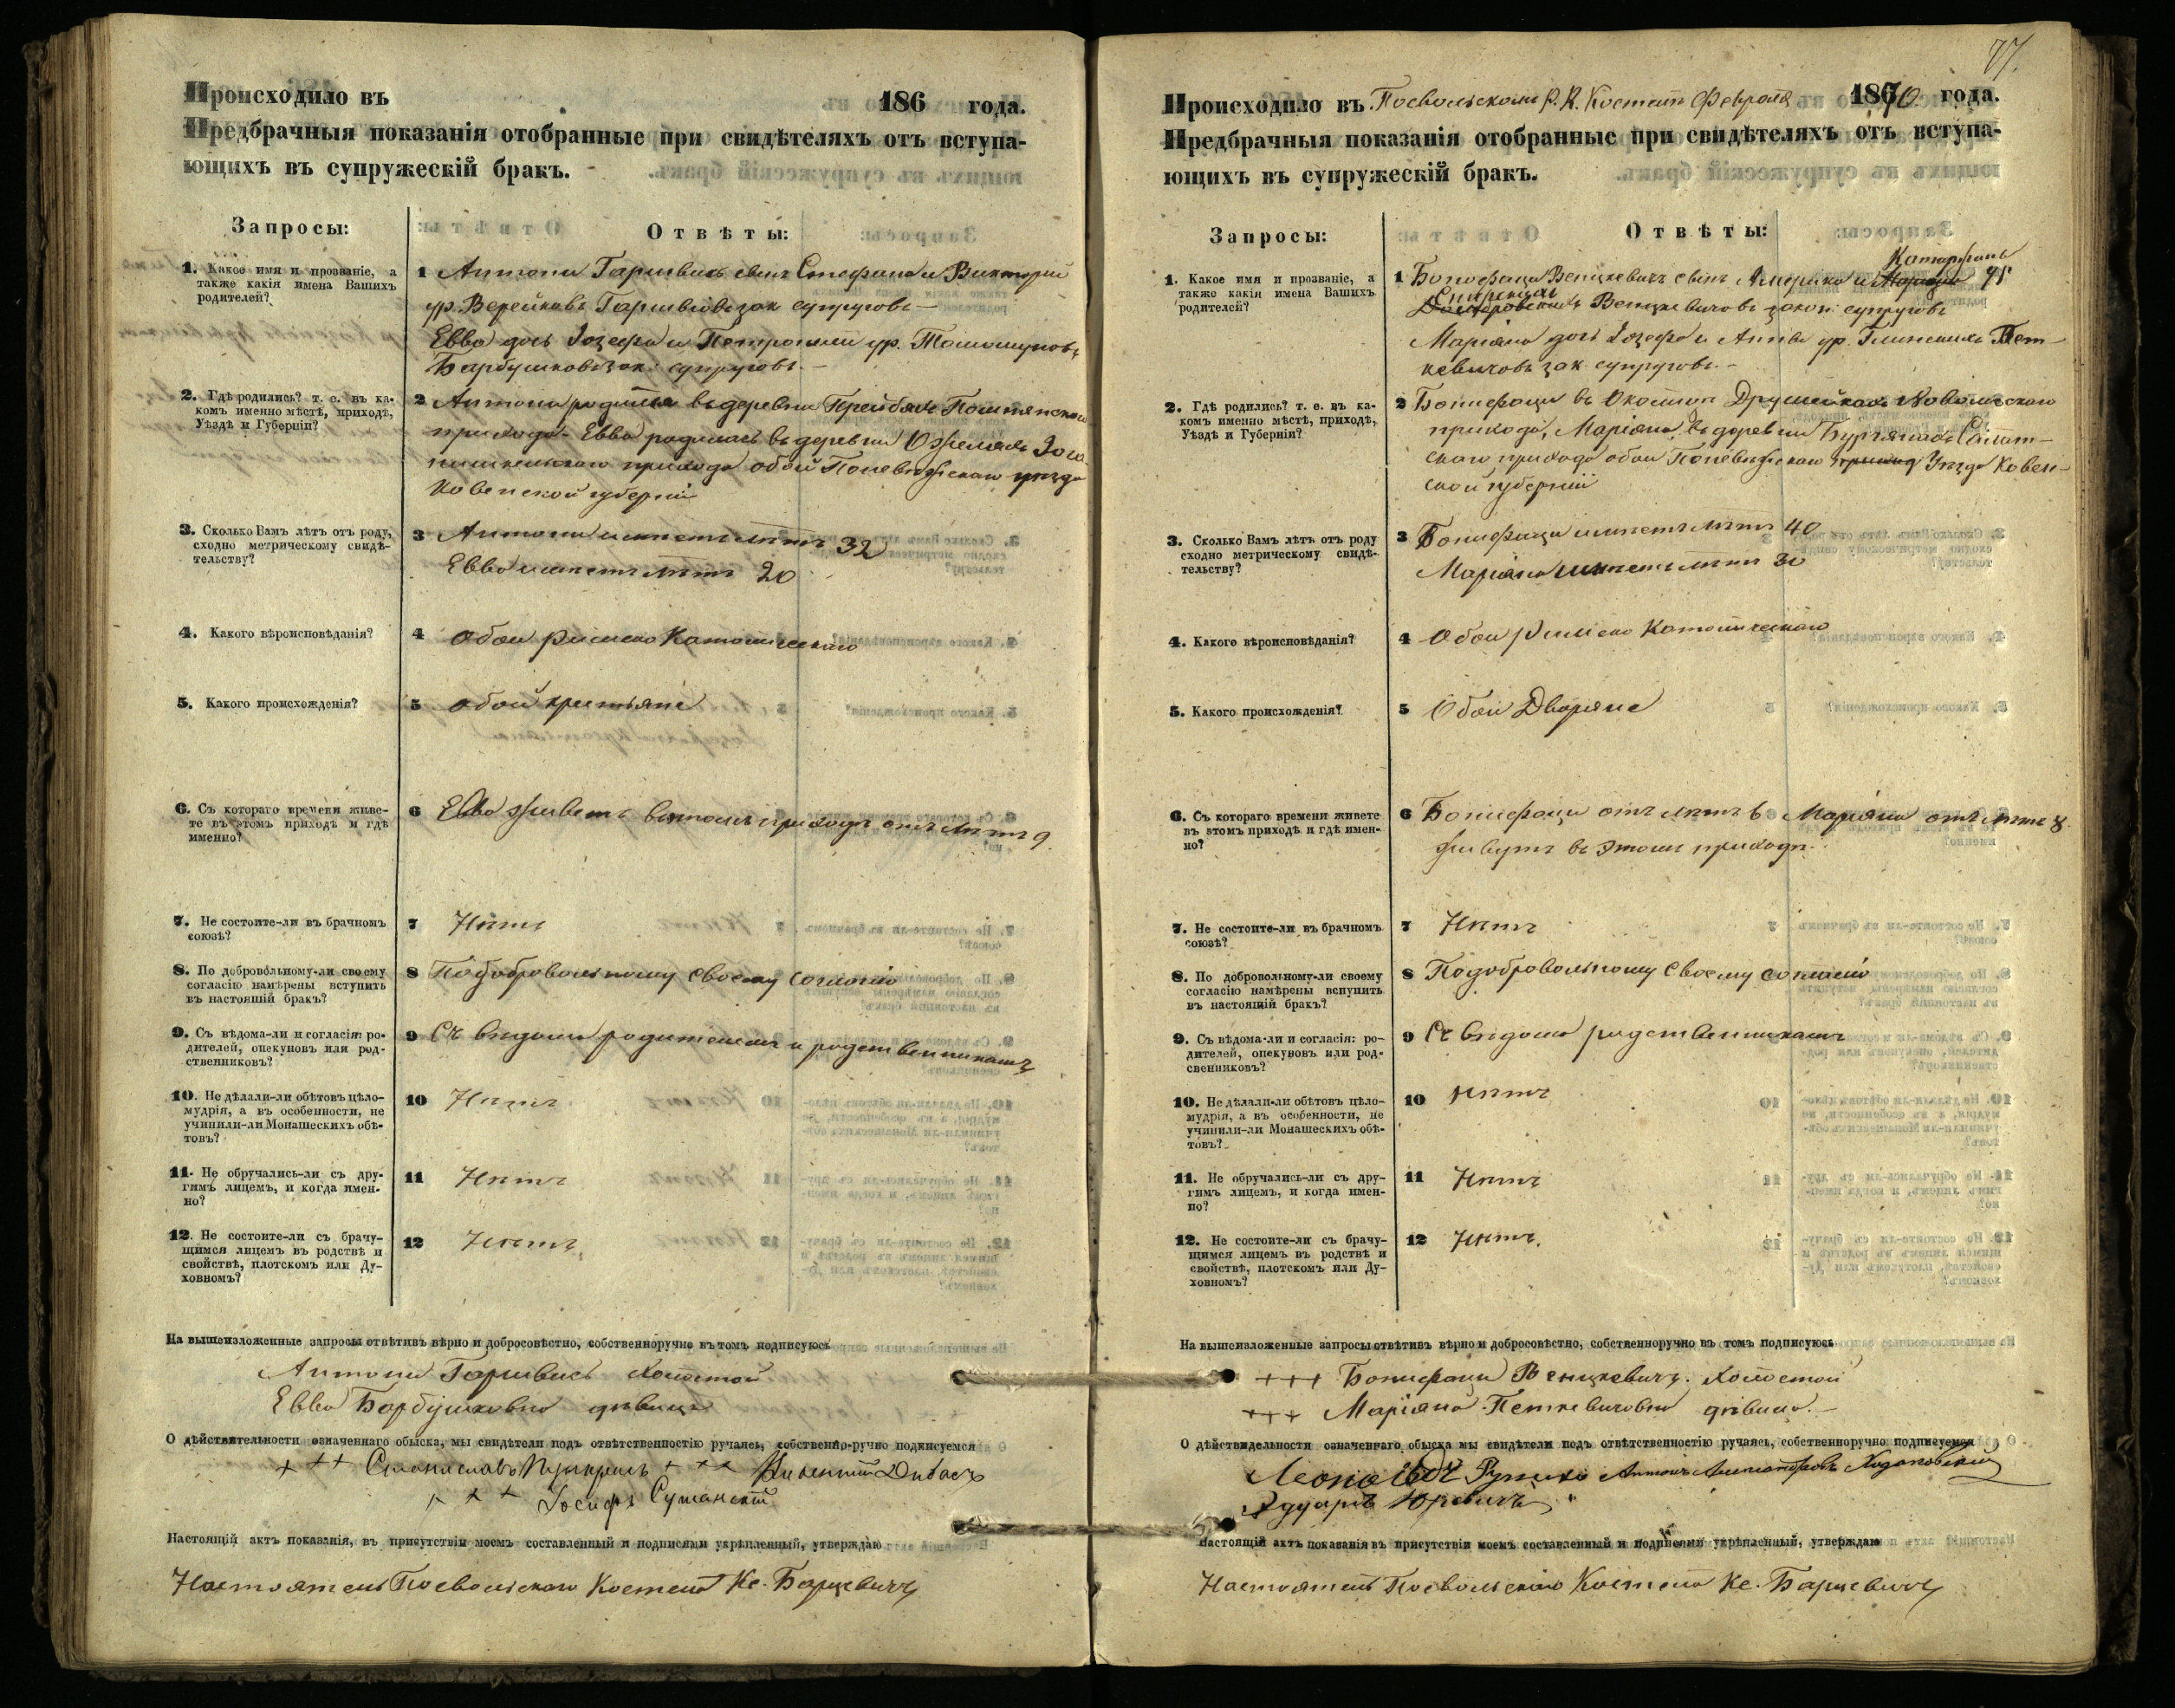 Происходило въ 186 года.
Предбрачныя показанія отобранные при свидѣтеляхъ отъ вступа-
ющихъ въ супружескій бракъ.
Запросы:
Отвѣты:
1. Какое имя и прозваніе, а
также какія имена Вашихъ
родителей?
1 Антони Гаршвась сынъ Стефана и Викторіи
ур.
супруговъ
Евва дочь Іозефа и Петронели ур.
зак. супруговъ.
2. Гдѣ родились? т. е. въ ка-
комъ именно мѣстѣ, приходѣ,
Уѣздѣ и Губерніи?
2 Антони родился въ деревни
прихода. Евва родилась въ деревни
прихода обои Поневѣжскаго уѣзда
Ковенской губерніи
3. Сколько Вамъ лѣтъ отъ роду,
сходно метрическому свидѣ-
тельству?
3 Антони имѣетъ лѣтъ 32
Евва имѣетъ лѣтъ 20
4. Какого вѣроисповѣданія?
4 обои римско Католическаго
5. Какого происхожденія?
5 обои крестьяне
6. Съ котораго времени живе-
те въ этомъ приходѣ и гдѣ
именно?
6 Евва живетъ въ этомъ приходѣ отъ лѣтъ 9
7. Не состоите-ли въ брачномъ
союзѣ?
7 Нѣтъ
8. По добровольному-ли своему
согласію намѣрены вступить
въ настоящій бракъ?
8 По добровольному своему согласію
9. Съ вѣдома-ли и согласія: ро-
дителей, опекуновъ или род-
ственниковъ?
9 Съ вѣдома родителемъ и родственникамъ
10. Не дѣлали-ли обѣтовъ цѣло-
мудрія, а въ особенности, не
учинили-ли Монашескихъ обѣ-
товъ?
10 Нѣтъ
11. Не обручались-ли съ дру-
гимъ лицемъ, и когда имен-
но?
11 Нѣтъ
12. Не состоите-ли съ брачу-
щимся лицемъ въ родствѣ и
свойствѣ, плотскомъ или Ду-
ховномъ?
12 Нѣтъ
На вышеизложенные запросы отвѣтивъ вѣрно и добросовѣстно, собственноручно въ томъ подписуюсь
Антони Гаршвась холостой
Евва Барбушковна дѣвица
О дѣйствительности означеннаго обыска, мы свидѣтели подъ отвѣтственностію ручаясь, собственно-ручно подписуемся
+ + + Станиславъ + + +
+ + + Іосифъ
Настоящій актъ показанія, въ присутствіи моемъ составленный и подписями укрѣпленный, утверждаю
Настоятель Посвольскаго Костела Кс. Барцевичъ
77.
Происходило въ Посвольскомъ Р. К. Костелѣ Февраля 1870 года.
Предбрачныя показанія отобранные при свидѣтеляхъ отъ вступа-
ющихъ въ супружескій бракъ.
Запросы:
Отвѣты:
1. Какое имя и прозваніе, а
также какія имена Вашихъ
родителей?
1 Бонифаци Венцкевичъ сынъ и ур.
Венцкевичовъ закон. супруговъ
Маріяна дочь Іозефа и Анны ур. Пет-
кевичовъ зак. супруговъ.
2. Гдѣ родились? т. е. въ ка-
комъ именно мѣстѣ, приходѣ,
Уѣздѣ и Губерніи?
2 Бонифаци въ Околицы
прихода, Маріяна въ деревни Салат-
скаго прихода обои Поневѣжскаго Уѣзда Ковен-
ской губерніи
3. Сколько Вамъ лѣтъ отъ роду
сходно метрическому свидѣ-
тельству?
3 Бонифаци имѣетъ лѣтъ 40
Маріяна имѣетъ лѣтъ 30
4. Какого вѣроисповѣданія?
4 Обои римско Католическаго
5. Какого происхожденія?
5 Обои Дворяне
6. Съ котораго времени живете
въ этомъ приходѣ и гдѣ имен-
но?
6 Бонифаци отъ лѣтъ 6 Маріяна отъ лѣтъ 8
живутъ въ этомъ приходѣ.
7. Не состоите-ли въ брачномъ
союзѣ?
7 Нѣтъ
8. По добровольному-ли своему
согласію намѣрены вспупить
въ настоящій бракъ?
8 По добровольному своему согласію
9. Съ вѣдома-ли и согласія: ро-
дителей, опекуновъ или род-
свенниковъ?
9 Съ вѣдома родственникамъ
10. Не дѣлали-ли обѣтовъ цѣло-
мудрія, а въ особенности, не
учинили-ли Монашескихъ обѣ-
товъ?
10 Нѣтъ
11. Не обручались-ли съ дру-
гимъ лицемъ, и когда имен-
но?
11 Нѣтъ
12. Не состоите-ли съ брачу-
щимся лицемъ въ родствѣ и
свойствѣ, плотскомъ или Ду-
ховномъ?
12 Нѣтъ.
На вышеизложенные запросы отвѣтивъ вѣрно и добросовѣстно, собственноручно въ томъ подписуюсь
+++ Бонифаци Венцкевичъ. холостой
+++ Маріяна Петкевичовна дѣвица.
О дѣйствидельности означеннаго обыска мы свидѣтели подъ отвѣтственностію ручаясь, собственноручно подписуемся
Антонъ Ходаковскій
Эдуардъ Юревичъ
Настоящій актъ показанія въ присутствіи моемъ составленный и подписями укрѣпленный, утверждаю
Настоятель Посвольскаго Костела Кс. Барцевичъ